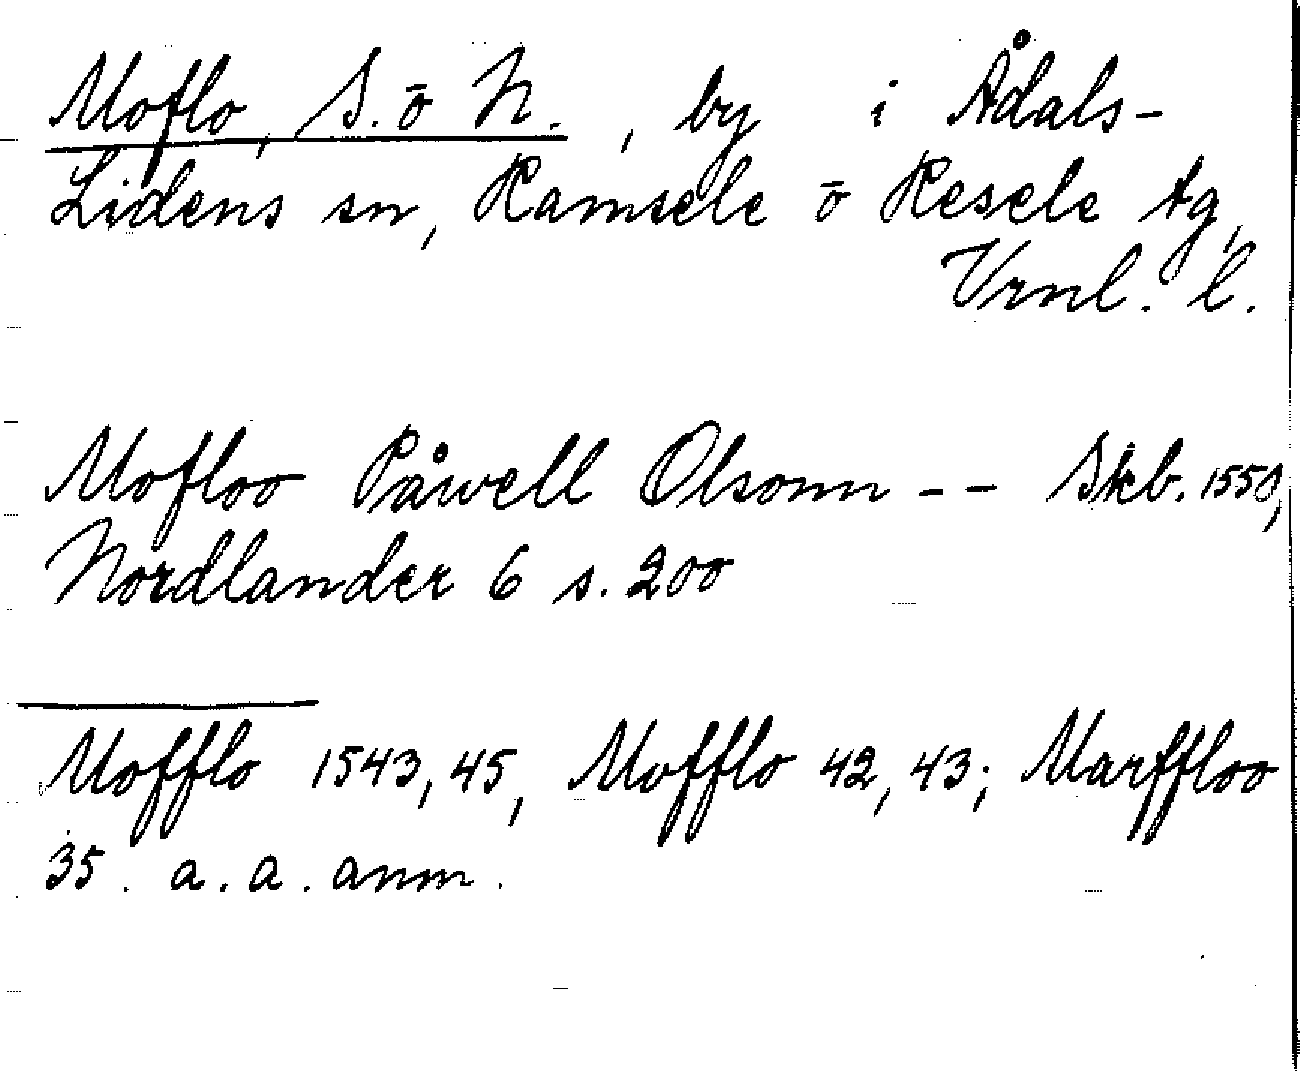 Moflo, S. ō N., by i Ådals-
Lidens sn, Ramsele ō Resele tg,
Vrnl. l.
Mofloo Påwell Olsonn -- Skb. 1550,
Nordlander 6 s. 200
Mofflo 1543, 45, Mofflo 42, 43; Marffloo
35. a. a. anm.